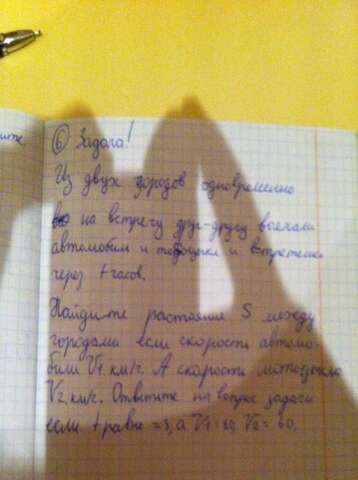 ите
⑥ Задача!
Из двух городов одновременно
на встречу друг-другу выехали
автомобили и мотоцикл и встретились
через t часов.
Найдите растояние S между
городами если скорости автомо-
били V1 км/ч. А скорости мотоцикла
V2 км/ч. Ответьте на вопрос задачи
если t равне =3, а V1=80, V2= 60.